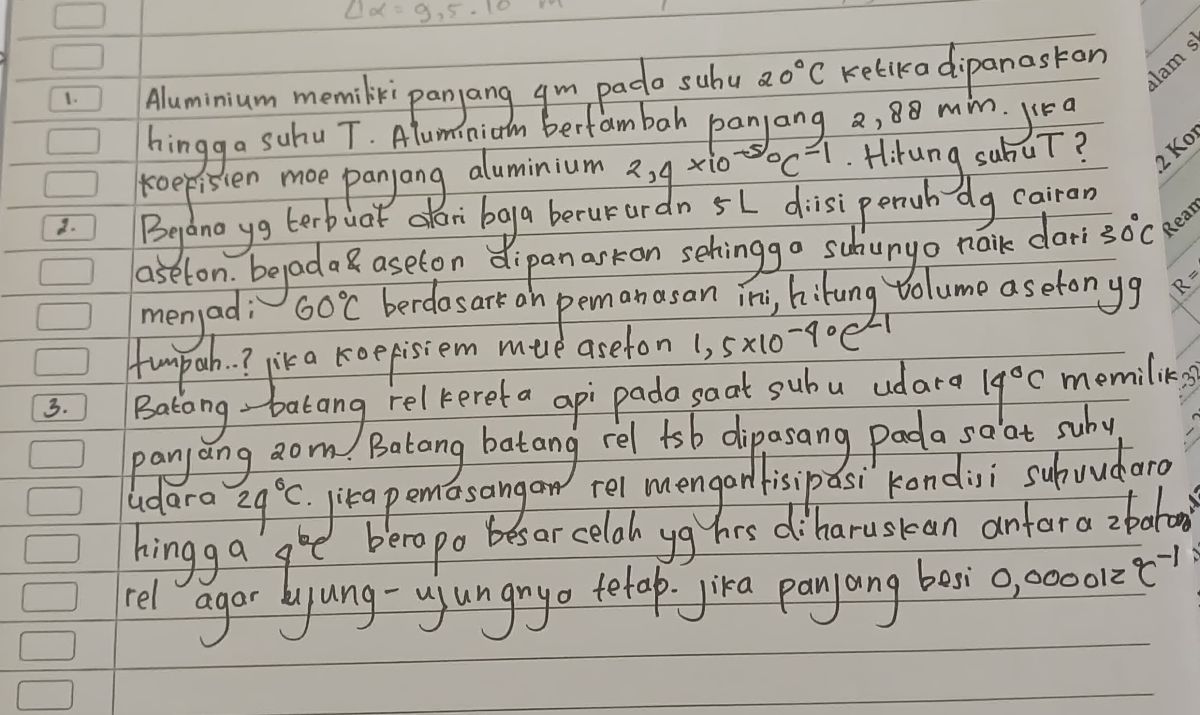 Δα = 9,5 . 10 m
1. Aluminium memiliki panjang 4m pada suhu 20°C ketika dipanaskan
hingga suhu T. Aluminium bertambah panjang 2,88 mm. Jika
koefisien moe panjang aluminium 2,4 x10⁻⁵ °C⁻¹. Hitung suhu T?
2. Bejana yg terbuat dari baja berukuran 5 L diisi penuh dg cairan
aseton. bejada & aseton dipanaskan sehingga suhunya naik dari 30°C
menjadi 60°C berdasarkan pemanasan ini, hitung volume aseton yg
tumpah..? jika koefisiem mue aseton 1,5x10⁻⁴ °C⁻¹
3. Batang-batang rel kereta api pada saat suhu udara 14°C memilik
panjang 20m. Batang batang rel tsb dipasang pada saat suhu
udara 24°C. jika pemasangan rel mengantisipasi kondisi suhu udara
hingga berapa besar celah yg hrs diharuskan antara 2 batang
rel agar ujung-ujungnya tetap. Jika panjang besi 0,000012 °C⁻¹
alam
.2 Kon
Ream
R =